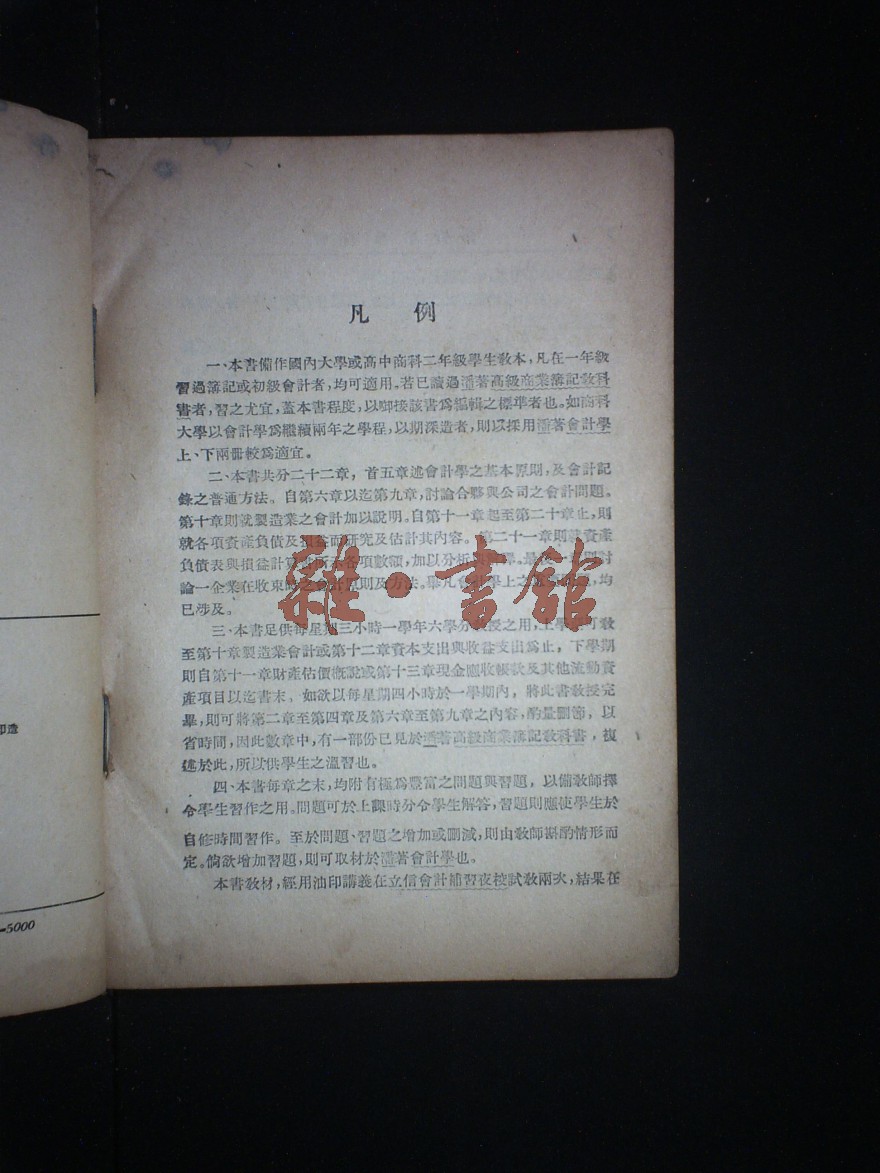 凡例
一、本書備作國內大學或高中商科二年級學生教本，凡在一年級
習過簿記或初級會計者，均可適用。若已讀過潘著高級商業簿記教科
書者，習之尤宜，蓋本書程度，以啣接該書爲編輯之標準者也。如商科
大學以會計學爲繼續兩年之學程，以期深造者，則以採用潘著會計學
上、下兩冊較爲適宜。
二、本書共分二十二章，首五章述會計學之基本原則，及會計記
錄之普通方法。自第六章以迄第九章，討論合夥與公司之會計問題。
第十章則就製造業之會計加以說明。自第十一章起至第二十章止，則
就各項資產負債及損益而研究及估計其內容。第二十一章則就資產
負債表與損益計算書所示各項數額，加以分析與
論一企業在收束時之會計原則及方法。舉凡會計學上之 均
已涉及。
三、本書足供每星期三小時一學年六學分教授之用。上學期可教
至第十章製造業會計或第十二章資本支出與收益支出爲止，下學期
則自第十一章財產估價概說或第十三章現金應收帳款及其他流動資
產項目以迄書末。如欲以每星期四小時於一學期內，將此書教授完
畢，則可將第二章至第四章及第六章至第九章之內容，酌量刪節，以
省時間，因此數章中，有一部份已見於潘著高級商業簿記教科書，複
述於此，所以供學生之溫習也。
四、本書每章之末，均附有極爲豐富之問題與習題，以備教師擇
令學生習作之用。問題可於上課時分令學生解答，習題則應使學生於
自修時間習作。至於問題、習題之增加或刪減，則由教師斟酌情形而
定。倘欲增加習題，則可取材於潘著會計學也。
本書教材，經用油印講義在立信會計補習夜校試教兩次，結果在
雜·書館
印造
-5000